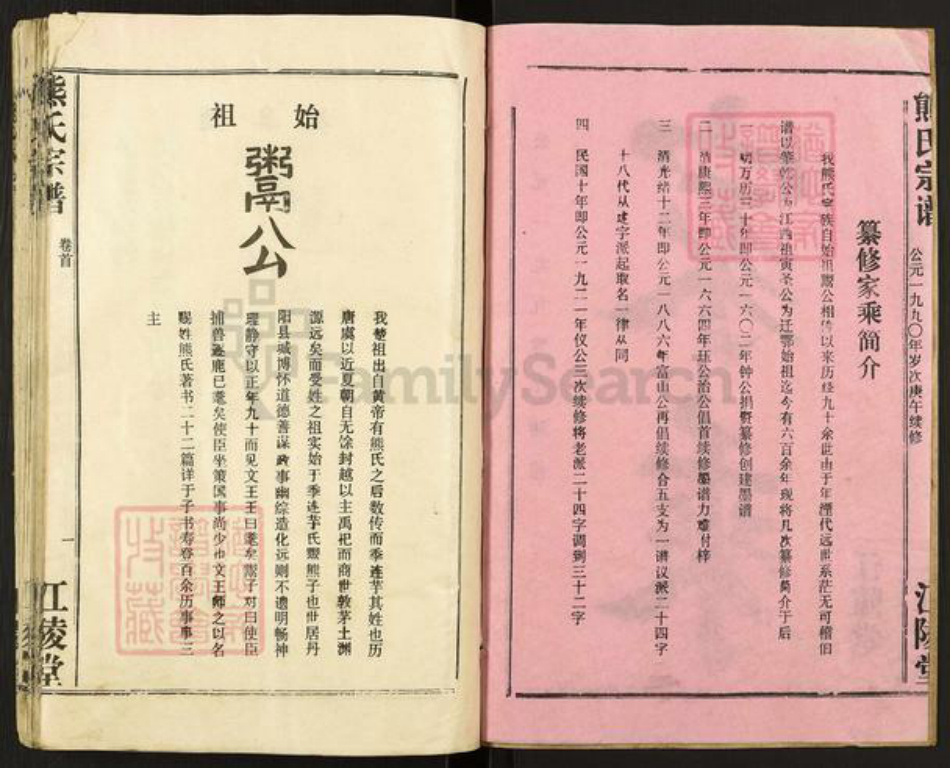 熊氏宗谱
公元一九九〇年岁次庚午续修
江陵堂
纂修家乘简介
我熊氏宗族自始祖鬻公相传以来历经九十余世由于年湮代远世系茫无可稽旧
谱以肇乾公为江西祖寅圣公为迁鄂始祖迄今有六百余年现将几次纂修简介于后
一 明万历三十年即公元一六〇二年钟公捐赀纂修创建墨谱
二 清康熙三年即公元一六六四年环公治公倡首续修墨谱力难付梓
三 清光绪十二年即公元一八八六年富山公再倡续修合五支为一谱议派二十四字
十八代从建字派起取名一律从同
四 民国十年即公元一九二一年仪公三次续修将老派二十四字调到三十二字
始祖
鬻公
我楚祖出自黄帝有熊氏之后数传而季连芊其姓也历
唐虞以近夏朝自无馀封越以主禹祀而商世敦茅土渊
源远矣而受姓之祖实始于季连芊氏鬻熊子也世居丹
阳县城博怀道德善谋政事幽综造化远则不遗明畅神
理静守以正年九十而见文王王曰耄矣鬻子对曰使臣
捕兽逐鹿已耄矣使臣坐策国事尚少也文王师之以名
赐姓熊氏著书二十二篇详于子书寿登百余历事事三
主
熊氏宗谱
卷首
一
江陵堂
FamilySearch